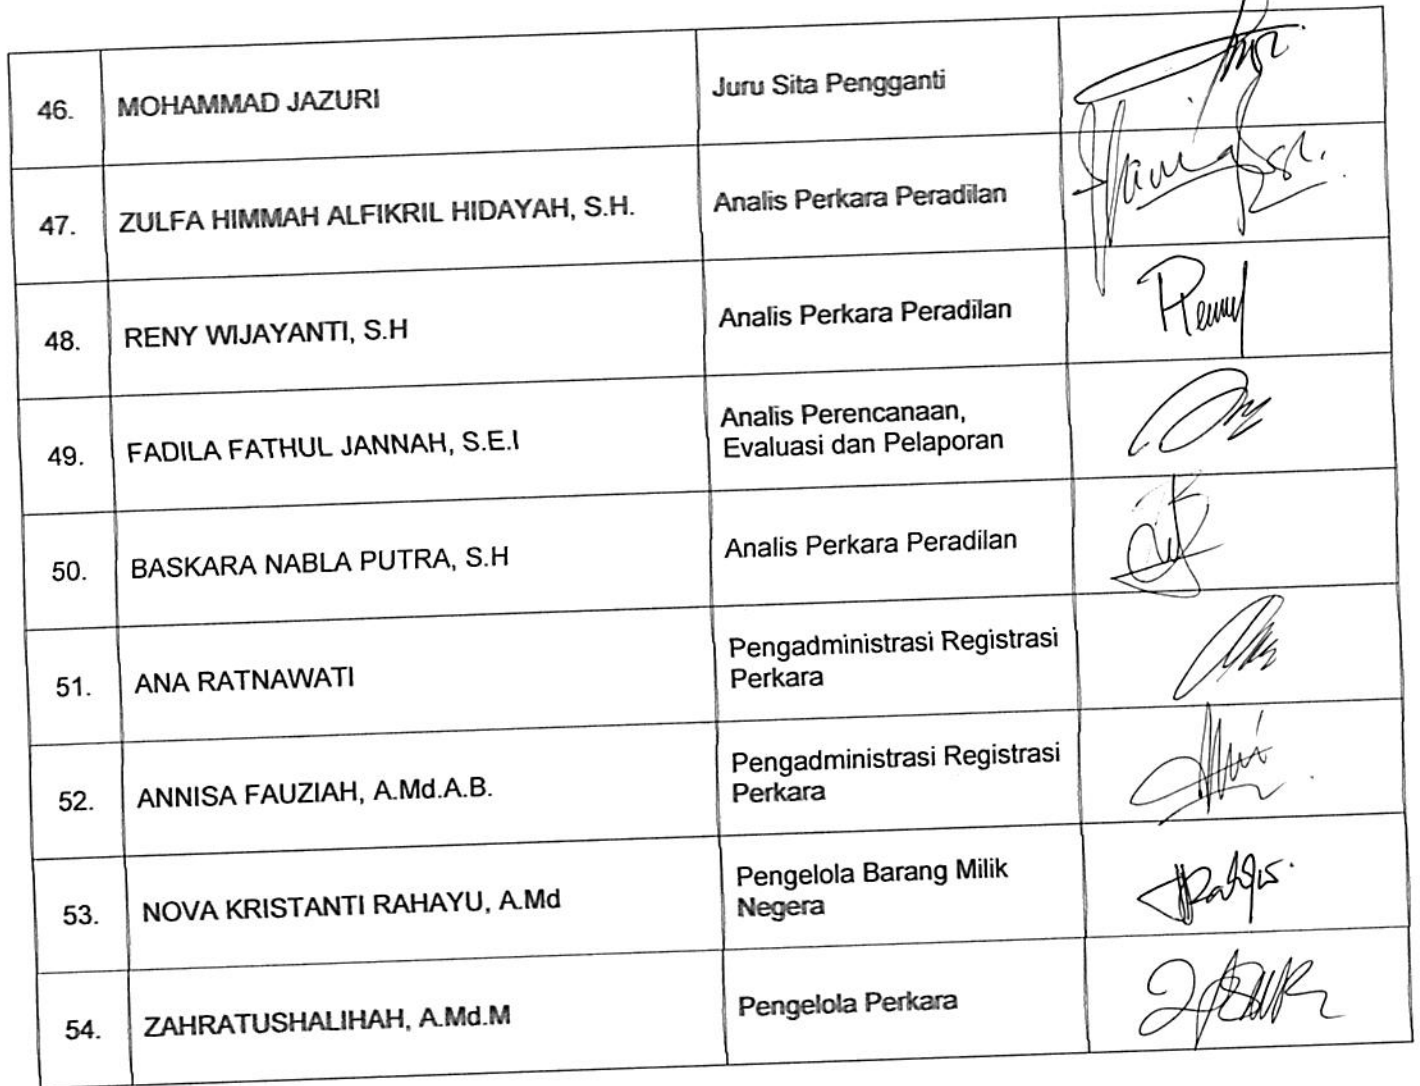 46. MOHAMMAD JAZURI Juru Sita Pengganti
47. ZULFA HIMMAH ALFIKRIL HIDAYAH, S.H. Analis Perkara Peradilan
48. RENY WIJAYANTI, S.H Analis Perkara Peradilan
49. FADILA FATHUL JANNAH, S.E.I Analis Perencanaan,
Evaluasi dan Pelaporan
50. BASKARA NABLA PUTRA, S.H Analis Perkara Peradilan
51. ANA RATNAWATI Pengadministrasi Registrasi
Perkara
52. ANNISA FAUZIAH, A.Md.A.B. Pengadministrasi Registrasi
Perkara
53. NOVA KRISTANTI RAHAYU, A.Md Pengelola Barang Milik
Negera
54. ZAHRATUSHALIHAH, A.Md.M Pengelola Perkara